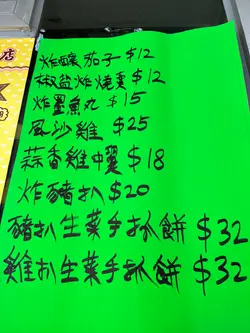 店
炸釀茄子 $12
椒盐炸燒賣 $12
炸墨魚丸 $15
風沙雞 $25
蒜香雞中翼 $18
炸豬扒 $20
豬扒生菜手抓餅 $32
雞扒生菜手抓餅 $32